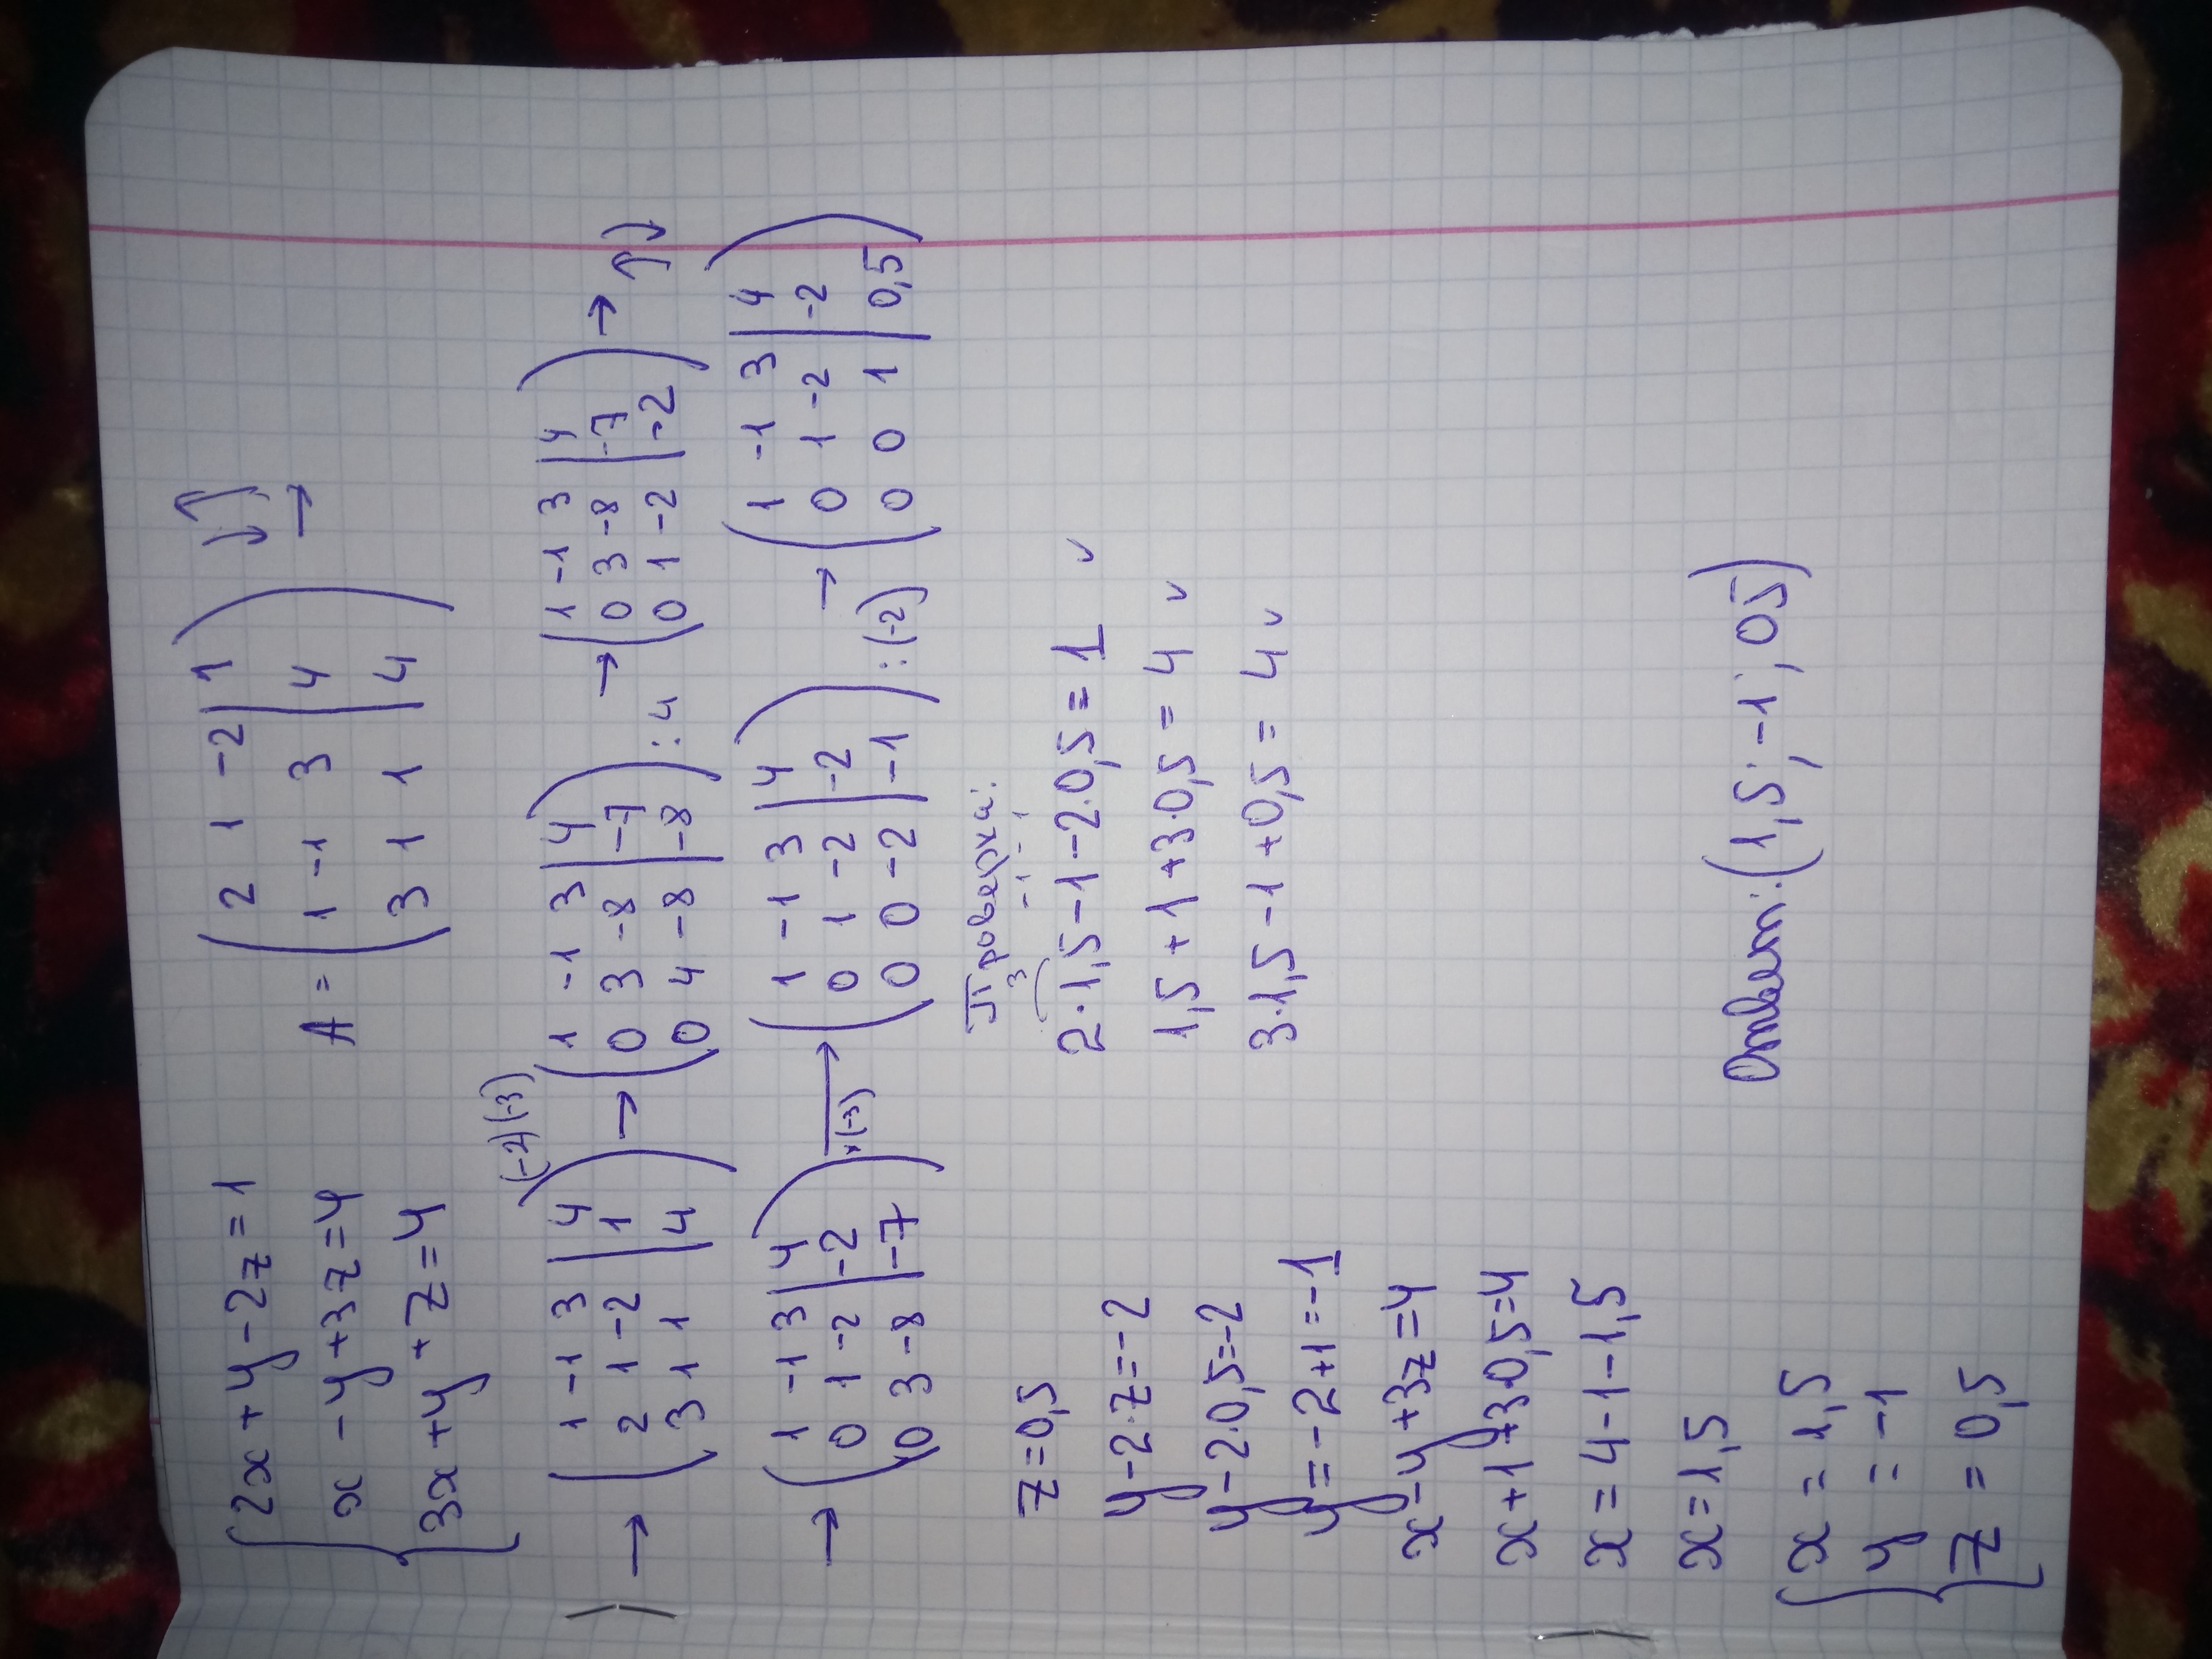 {2x+y-2z=1
x-y+3z=4
3x+y+z=4
A = (2 1 -2 | 1
1 -1 3 | 4
3 1 1 | 4) ↓↑ →
→ (1 -1 3 | 4
2 1 -2 | 1
3 1 1 | 4) (-2)(-3)
→ (1 -1 3 | 4
0 3 -8 | -7
0 4 -8 | -8) :4
→ (1 -1 3 | 4
0 3 -8 | -7
0 1 -2 | -2) → ↑↓
→ (1 -1 3 | 4
0 1 -2 | -2
0 3 -8 | -7) ×(-3)
→ (1 -1 3 | 4
0 1 -2 | -2
0 0 -2 | -1) :(-2)
→ (1 -1 3 | 4
0 1 -2 | -2
0 0 1 | 0,5)
z=0,5
y-2·z=-2
y-2·0,5=-2
y=-2+1=-1
x-y+3z=4
x+1+3·0,5=4
x=4-1-1,5
x=1,5
{x=1,5
y=-1
z=0,5
Проверка:
3 -1 -1
2·1,5-1-2·0,5=1 v
1,5+1+3·0,5=4 v
3·1,5-1+0,5=4 v
Ответ:(1,5;-1;05)